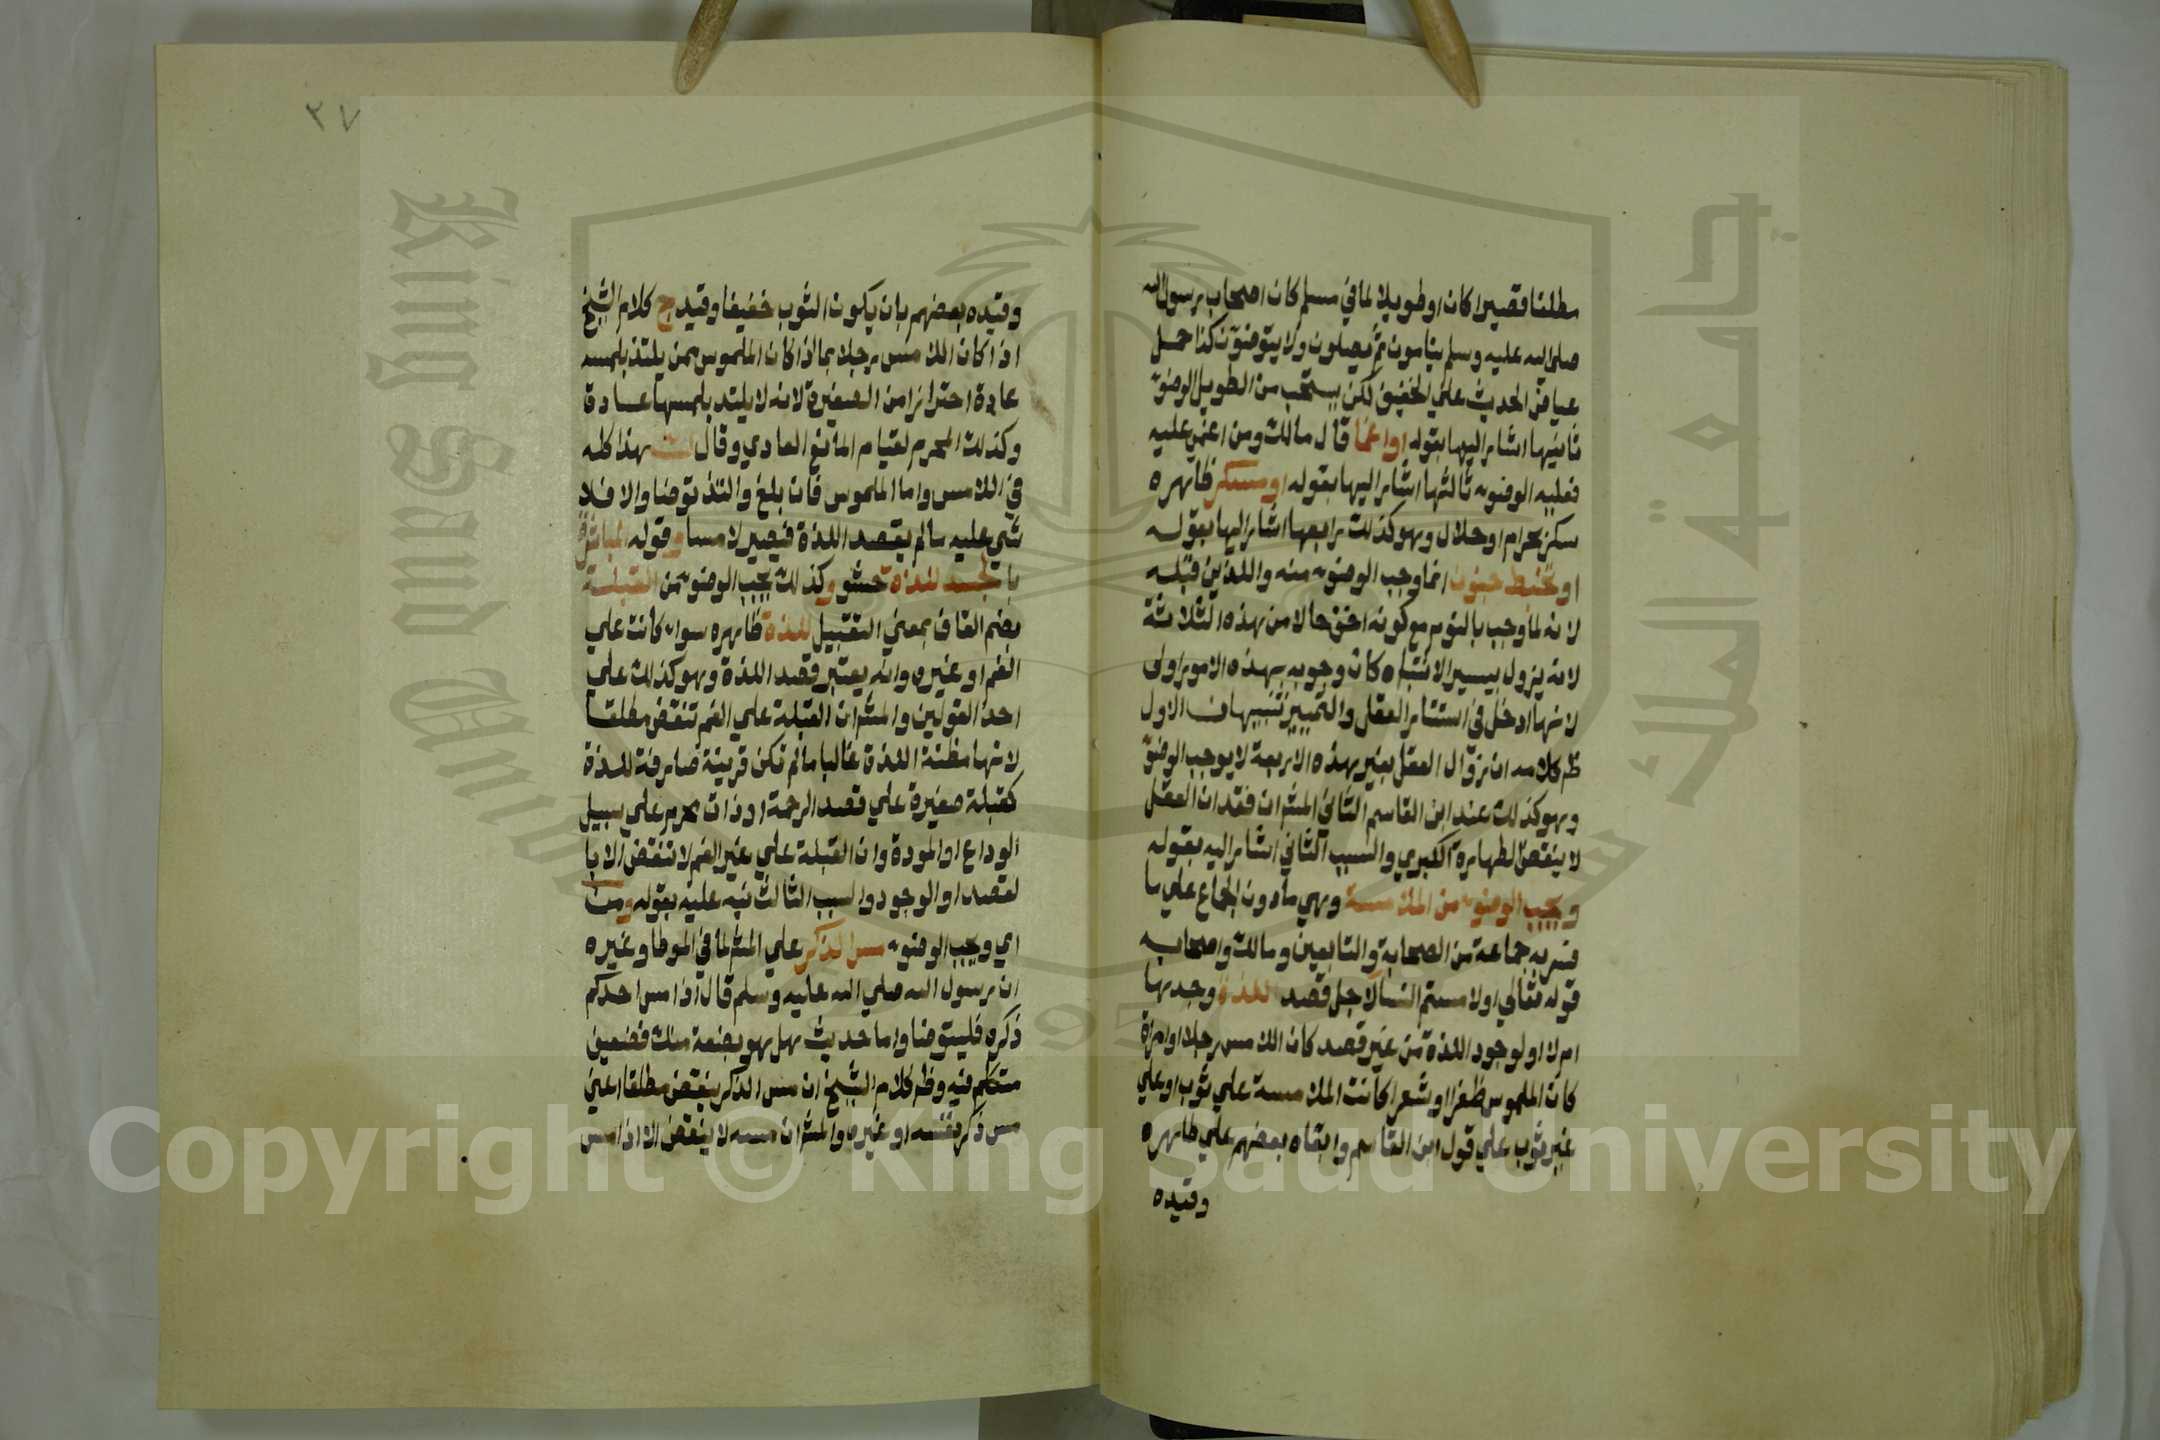 مطلقا قصيرا كان او طويلا لما في مسلم كان اصحاب رسول الله
صلى الله عليه وسلم ينامون ثم يصلون ولا يتوضؤن كذا حمل
عياض الحديث علي الخفيف لكن يستحب من الطويل الوضوء
ثانيها اشار اليها بقوله او اغما قال مالك ومن اغمي عليه
فعليه الوضوء ثالثها اشار اليها بقوله او سكر ظاهره
سكر بحرام او حلال وهو كذلك رابعها اشار اليها بقوله
او تخبط جنون انما وجب الوضوء منه واللذين قبله
لانه لما وجب بالنوم مع كونه اخف حالا من هذه الثلاثة
لانه يزول بيسير الانتباه كان وجوبه بهذه الامور اولى
لانها ادخل في استتار العقل والتمييز تنبيهان الاول
ظم كلامه ان زوال العقل بغير هذه الاربعة لا يوجب الوضو
وهو كذلك عند ابن القاسم الثاني المش ان فقدان العقل
لا ينقض الطهارة الكبري والسبب الثاني اشار اليه بقوله
و يجب الوضوء من الملامسة وهي ما دون الجماع علي ما
فسر به جماعة من الصحابة والتابعين ومالك واصحابه
قوله تعالي او لامستم النسا لاجل قصد اللذة وجدها
ام لا او لوجود اللذة من غير قصد كان اللامس رجلا او امراة
كان الملموس ظفرا او شعرا كانت الملامسة علي ثوب او علي
غير ثوب علي قول ابن القاسم وابقاه بعضهم علي ظاهره
وقيده
٢٧
وقيده بعضهم بان يكون الثوب خفيفا وقيد ج كلام الشيخ
اذا كان اللامس رجلا بما اذا كان الملموس ممن يلتذ بلمسه
عادة احترازا من الصغيرة لانه لا يلتذ بلمسها عادة
وكذلك المحرم لقيام المانع العادي وقال هذا كله
في اللامس واما الملموس فان بلغ والتذ توضا والا فلا
شي عليه ما لم يقصد اللذة فيصير لامسا و قوله المباشرة
بالجسد للذة حشو و كذلك يجب الوضوء من القبلة
بضم القاف بمعني التقبيل للذة ظاهره سواء كانت علي
الفم او غيره وانه يعتبر قصد اللذة وهو كذلك علي
احد القولين والمش ان القبلة علي الفم تنقض مطلقا
لانها مظنة اللذة غالبا ما لم تكن قرينة صارفة للذة
كقبلة صغيرة علي قصد الرحمة او ذات محرم علي سبيل
الوداع او المودة وان القبلة علي غير الفم لا تنقض الا با
لقصد او الوجود والسبب الثالث نبه عليه بقوله ومن
اي ويجب الوضوء مس الذكر علي المش لما في الموطا وغيره
ان رسول الله صلي الله عليه وسلم قال اذا مس احدكم
ذكره فليتوضا واما حديث هل هو بضعة منك فضعيف
متكلم فيه وظم كلام الشيخ ان مس الذكر ينقض مطلقا اعني
مس ذكر نفسه او غيره والمش ان مسه لا ينقض الا اذا مس